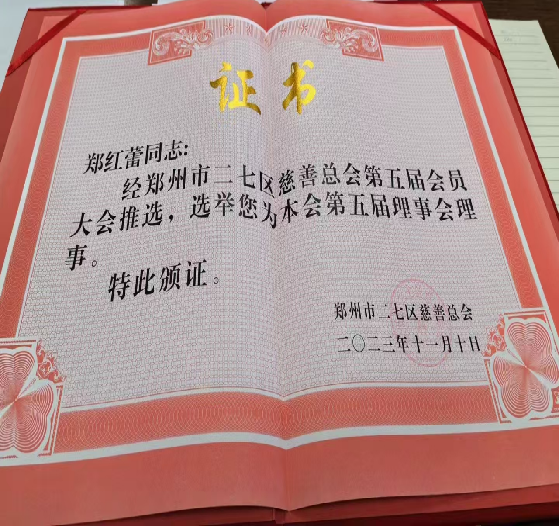 证书
郑红蕾同志:
经郑州市二七区慈善总会第五届会员
大会推选，选举您为本会第五届理事会理
事。
特此颁证。
郑州市二七区慈善总会
二〇二三年十一月十日